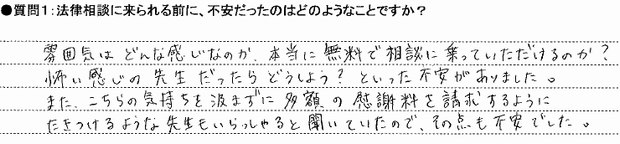 ●質問1:法律相談に来られる前に、不安だったのはどのようなことですか?
雰囲気はどんな感じなのか、本当に無料で相談に乗っていただけるのか?
怖い感じの先生だったらどうしよう?といった不安がありました。
また、こちらの気持ちを汲まずに多額の慰謝料を請求するように
たきつけるような先生もいらっしゃると聞いていたので、その点も不安でした。